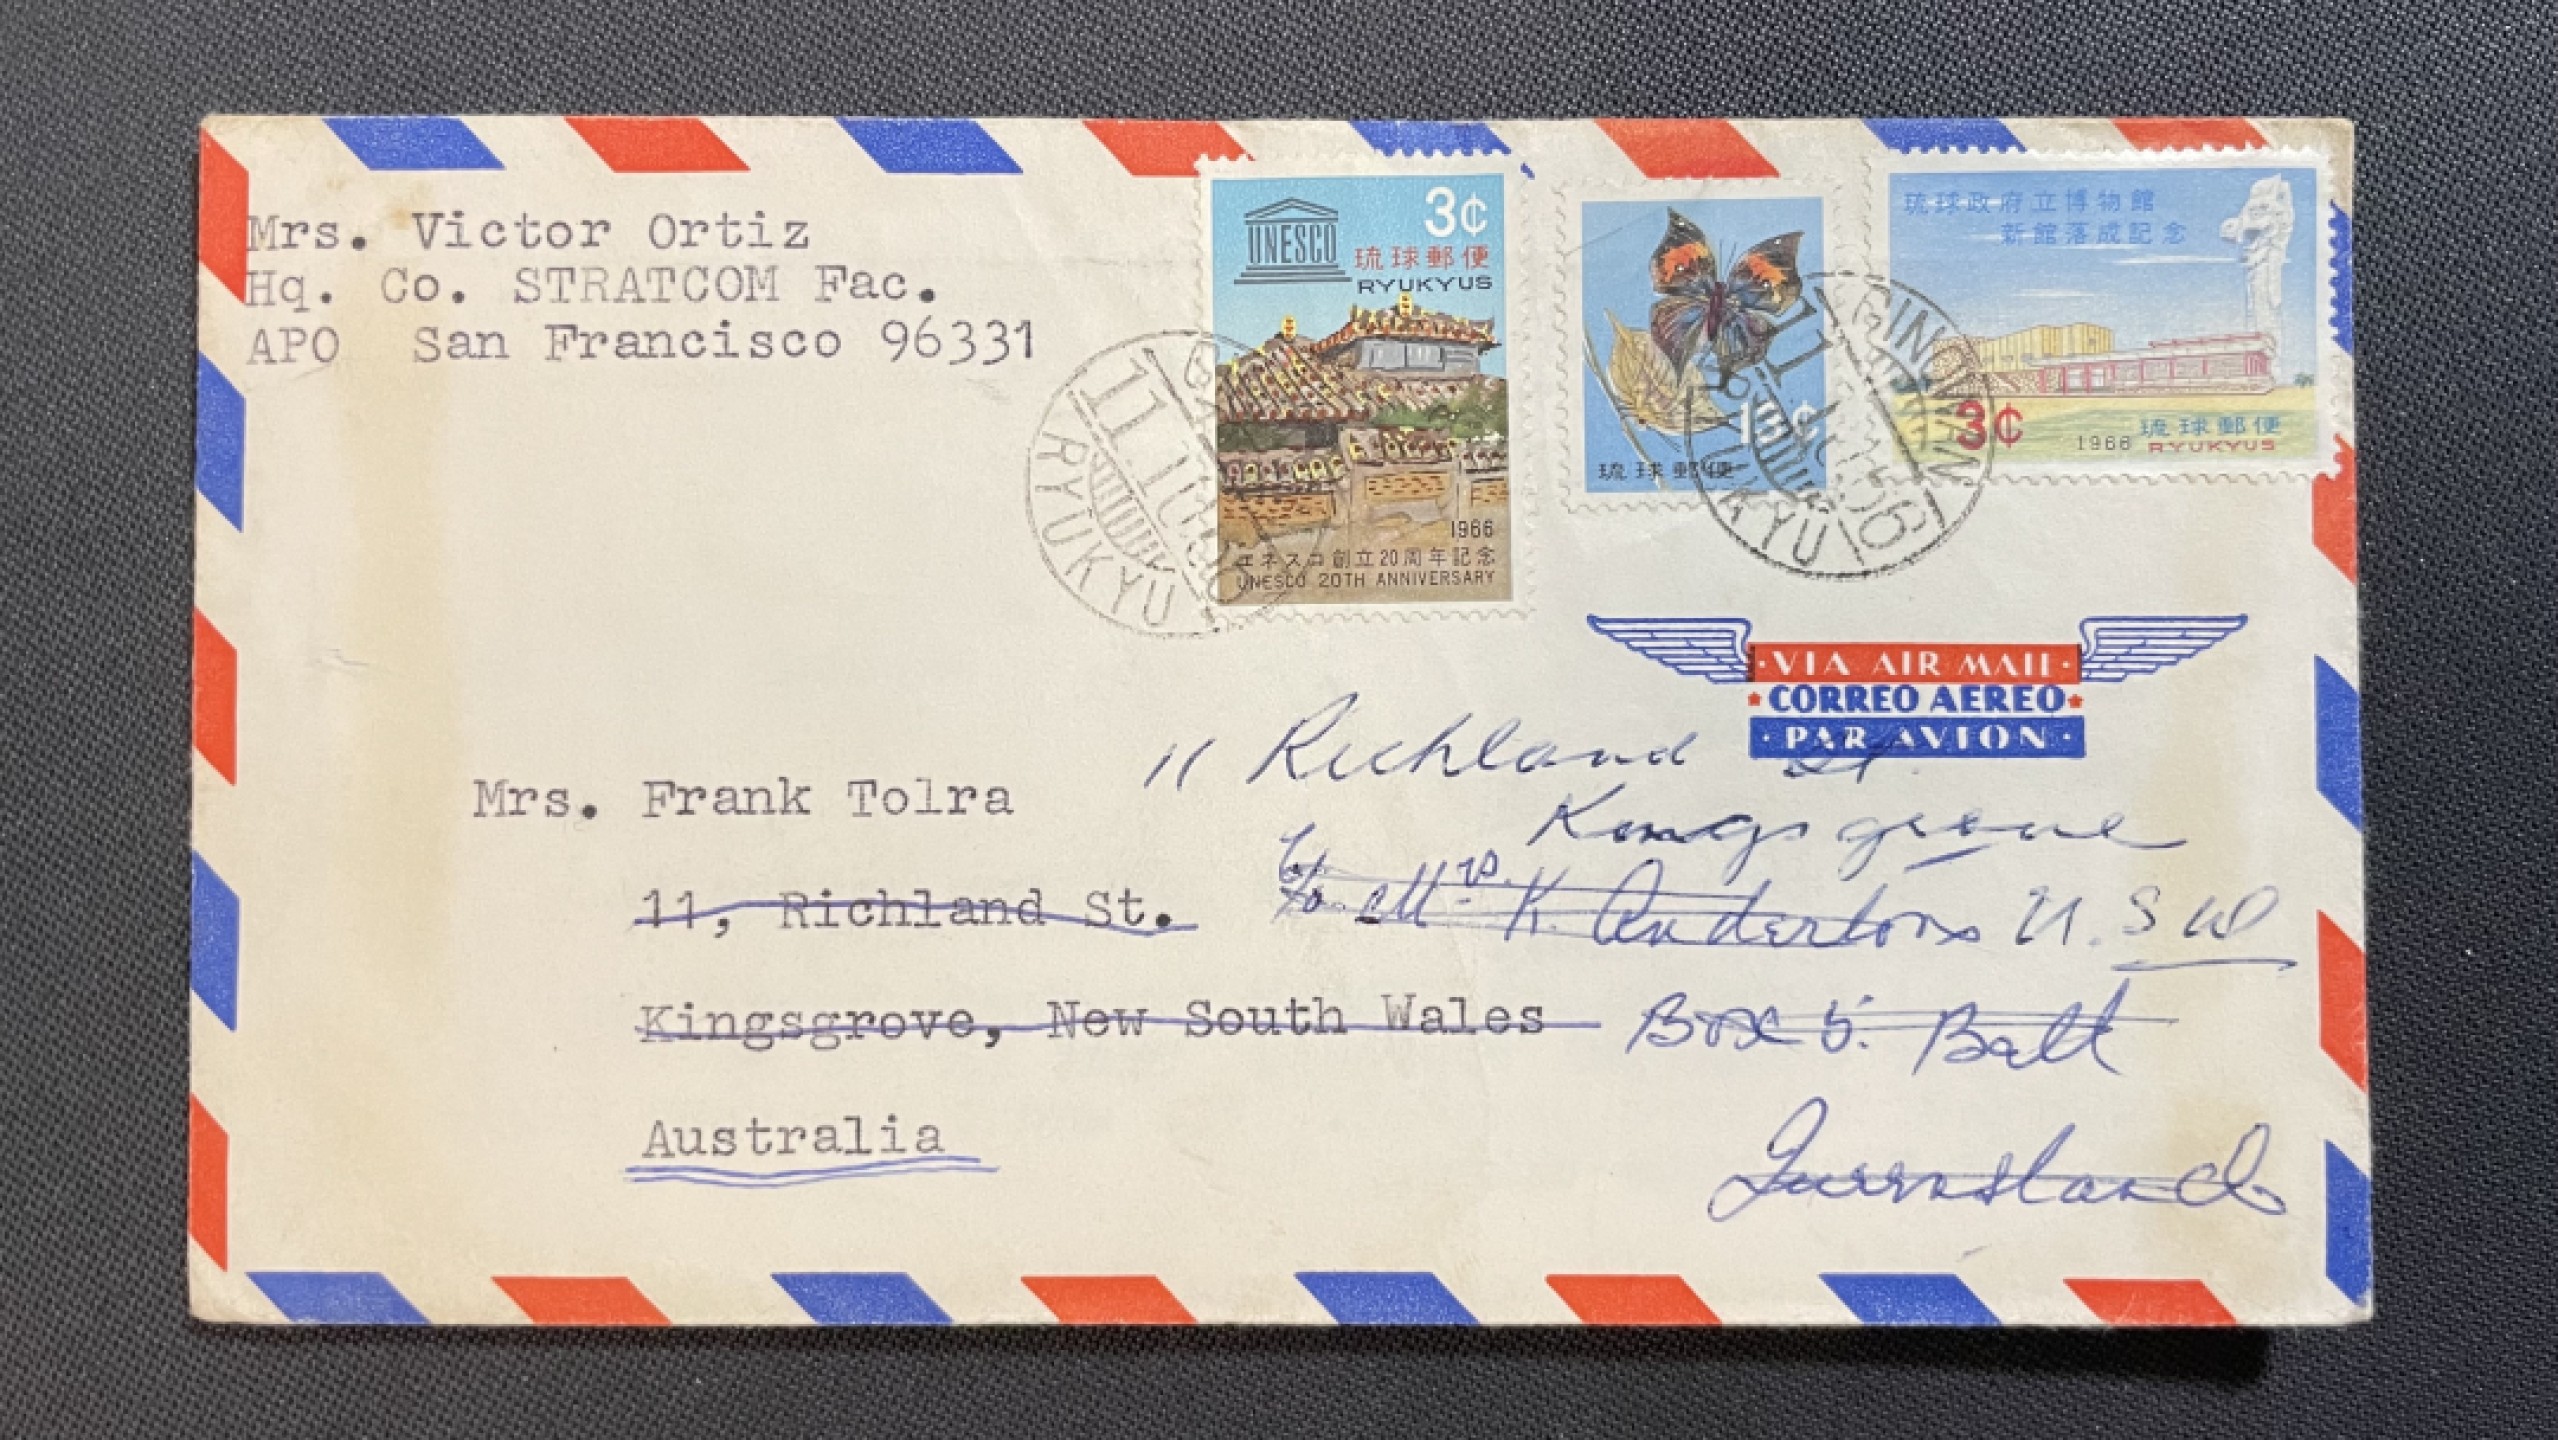 Mrs. Victor Ortiz
Hq. Co. STRATCOM Fac.
APO San Francisco 96331
UNESCO
3¢
琉球郵便
RYUKYUS
1966
ユネスコ創立20周年記念
UNESCO 20TH ANNIVERSARY
13¢
琉球郵便
琉球政府立博物館
新館落成記念
3¢
1966 琉球郵便
RYUKYUS
RYUKYU
GINOWAN
RYUKYU
VIA AIR MAIL
CORREO AEREO
PAR AVION
Mrs. Frank Tolra
11, Richland St.
Kingsgrove, New South Wales
Australia
11 Richland St.
Kingsgrove
c/o Mrs. K. Anderton N.S W
Box 5. Batt
Queensland